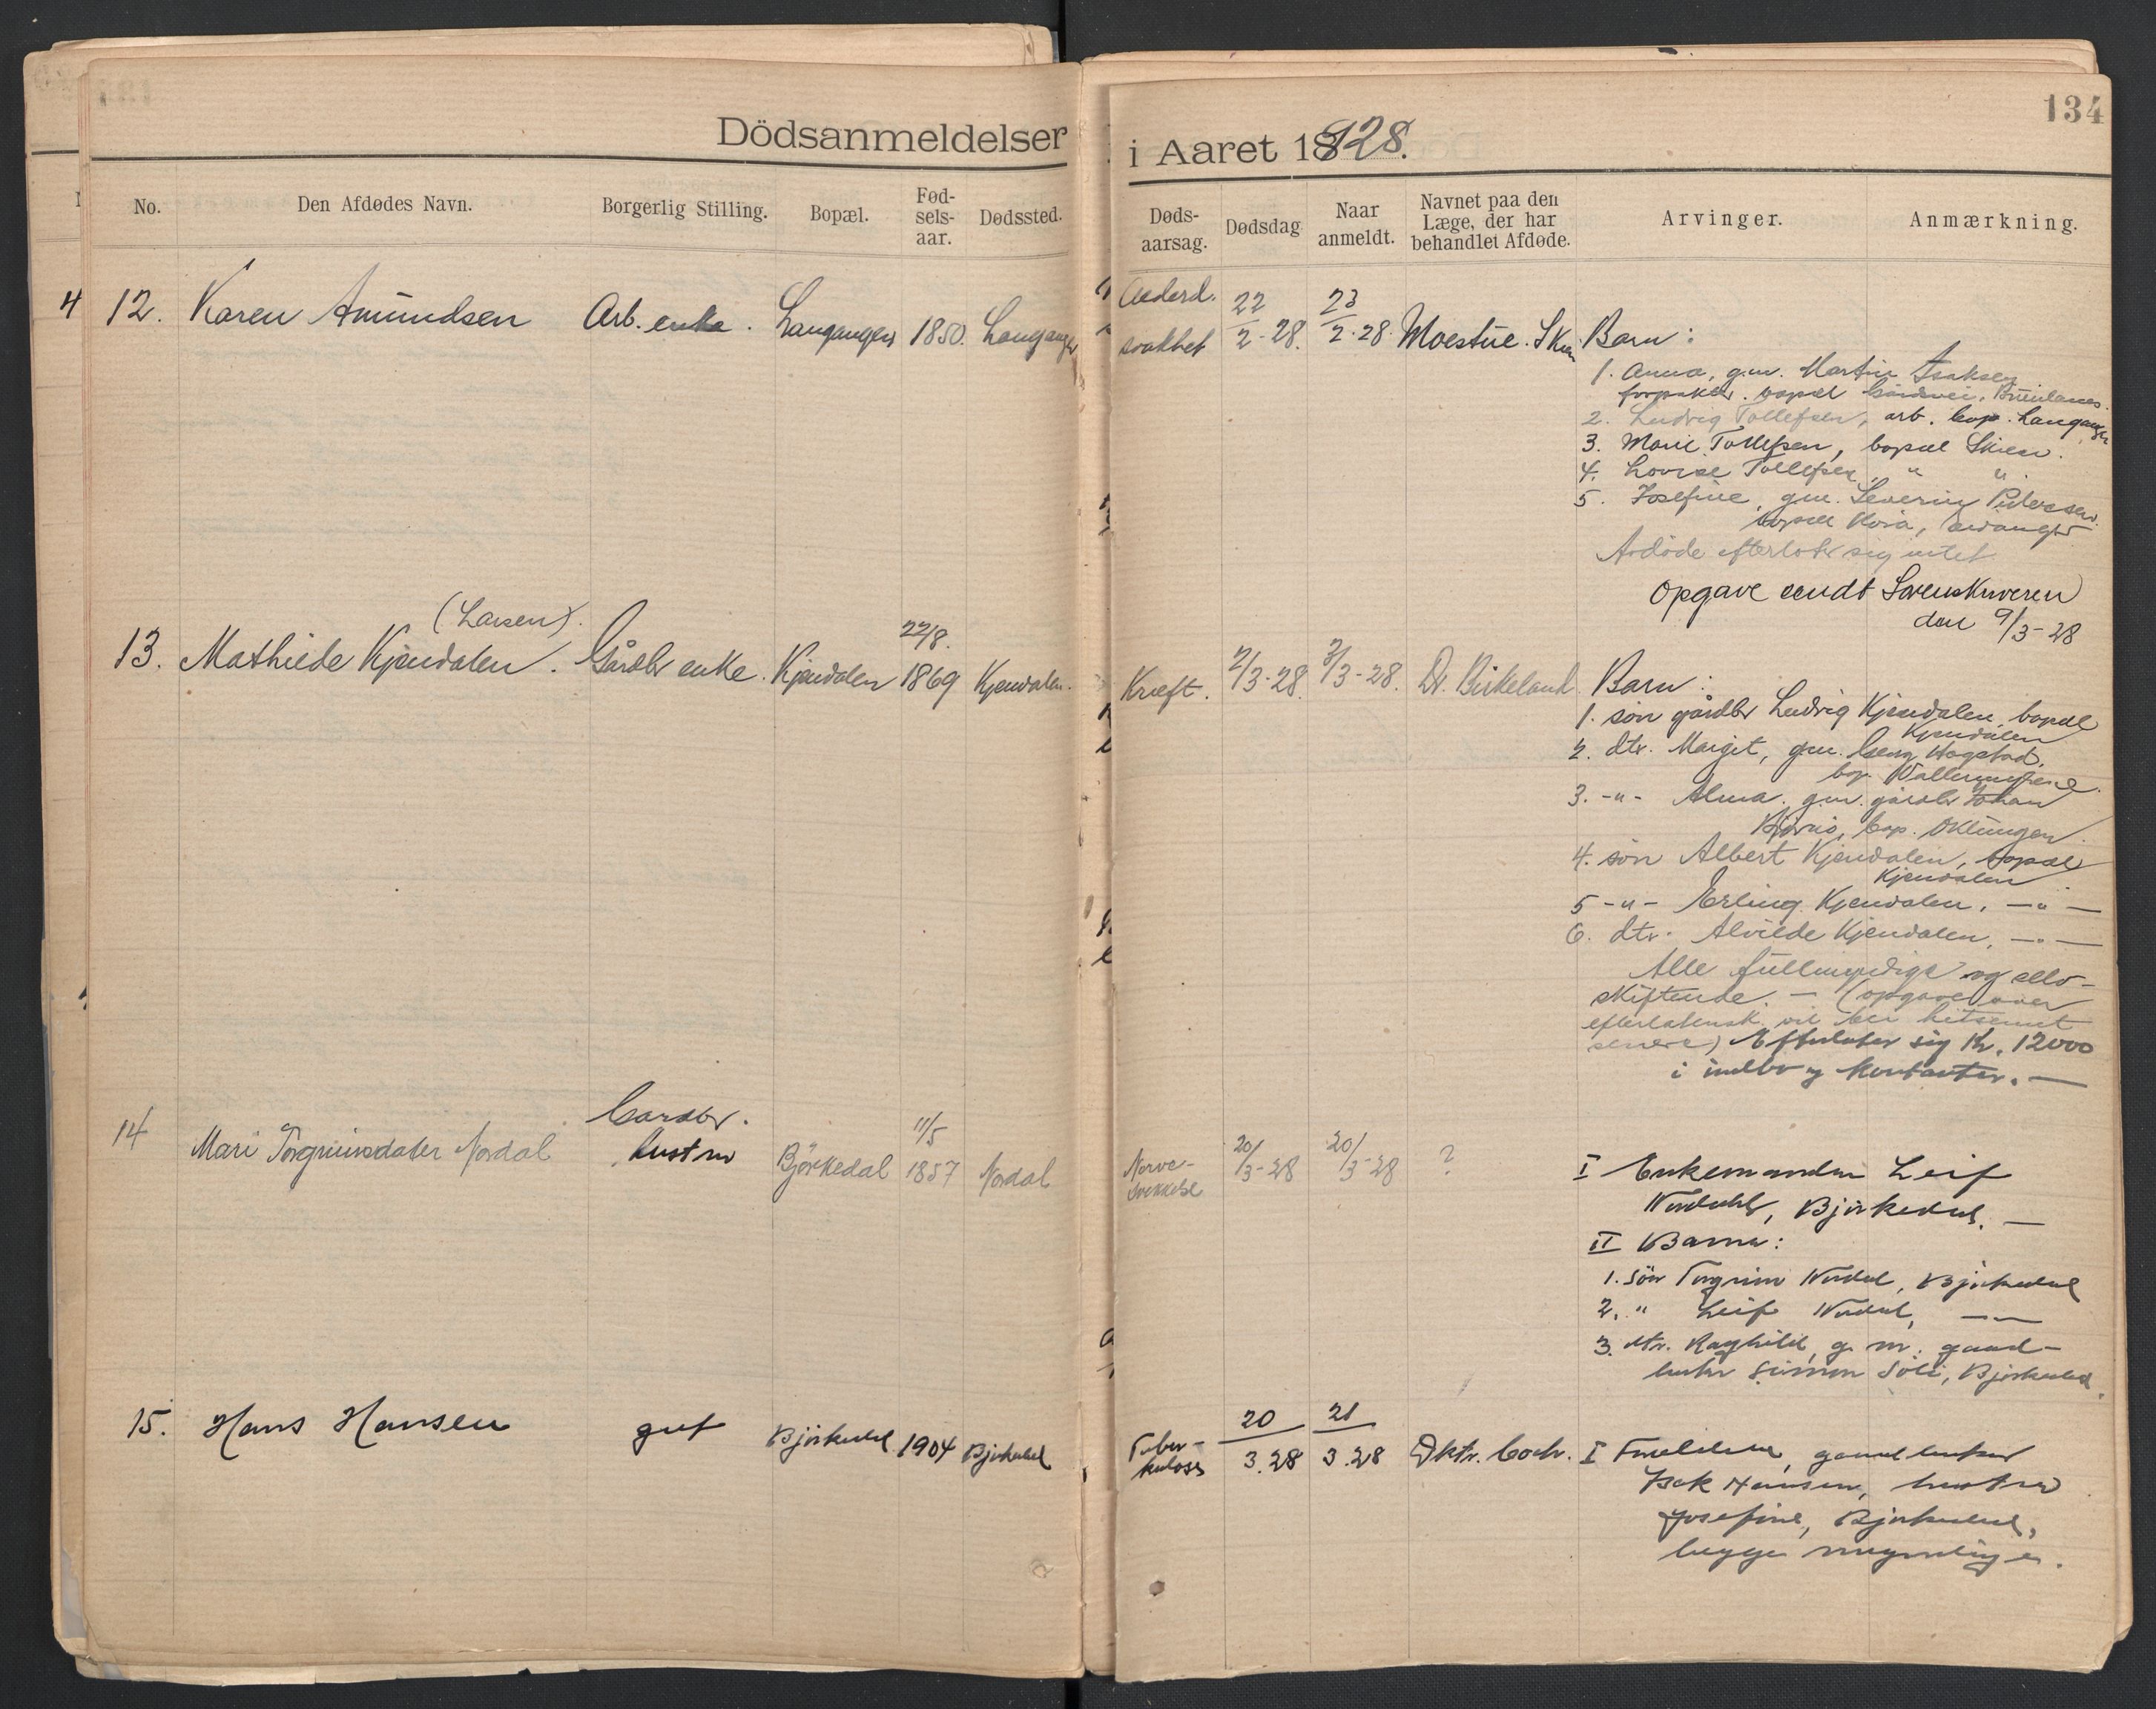 134
Dödsanmeldelser i Aaret 1928.
No. Den Afdødes Navn. Borgerlig Stilling. Bopæl. Fød-sels-aar. Dødssted. Døds-aarsag. Dødsdag Naar anmeldt. Navnet paa den Læge, der har behandlet Afdøde. Arvinger. Anmærkning.
4
12. Karen Amundsen Arb. enke. Langangen 1850. Langangen Alderd. svakhet 22/2-28. 23/2-28. Moestue. Skien Barn:
1. Anna, g.m. Martin Isaksen
forpakter. bopæl
2. Ludvig Tollefsen, arb. bop. Langangen
3. Marie Tollefsen, bopæl Skien.
4. Lovise Tollefsen " "
5. Josefine, gm. Severin Pedersen.
bopæl Eidanger
Avdöde efterlater sig intet
Opgave sendt Sorenskriveren
den 9/3-28
13. Mathilde Kjendalen (Larsen). Gårdbr enke. Kjendalen 22/8. 1869 Kjendalen. Kræft. 2/3-28. 3/3-28. Dr. Birkeland Barn:
1. sön gårdbr Ludvig Kjendalen, bopæl
Kjendalen
2. dtr. Margit, gm. Georg Hogstad,
bop. Vallermyrene.
3. -"- Alma. gm. gårdbr Johan
Bjørnö, bop. Oklungen
4. sön Albert Kjendalen, bopæl
Kjendalen
5 -"- Erling Kjendalen, -"-
6. dtr. Alvilde Kjendalen, -"-
Alle fuldmyndige og selv-
skiftende. - (opgave over
efterlatensk. vil bli hitsendt
senere) Efterlater sig Kr. 12000
i indbo og kontanter. -
14 Mari Torgrimsdater Nordal Gardbr. hustru Björkedal 11/5 1857 Nordal Nerve-svekkelse 20/3-28 20/3-28 ? I Enkemanden Leif
Nordahl, Björkedal. -
II Barna:
1. Sön Torgrim Nordal, Björkedal
2. " Leif Nordal, -"-
3. dtr. Raghild, g. m. gaard-
bruker Simon Soli, Björkedal.
15. Hans Hansen gut Björkedal 1904 Björkedal Tuber-kulose 20/3.28 21/3.28 Dktr. Coch. I Foreldrene, gaardbruker
Isak Hansen, hustru
Josefine, Björkedal,
begge myndige.